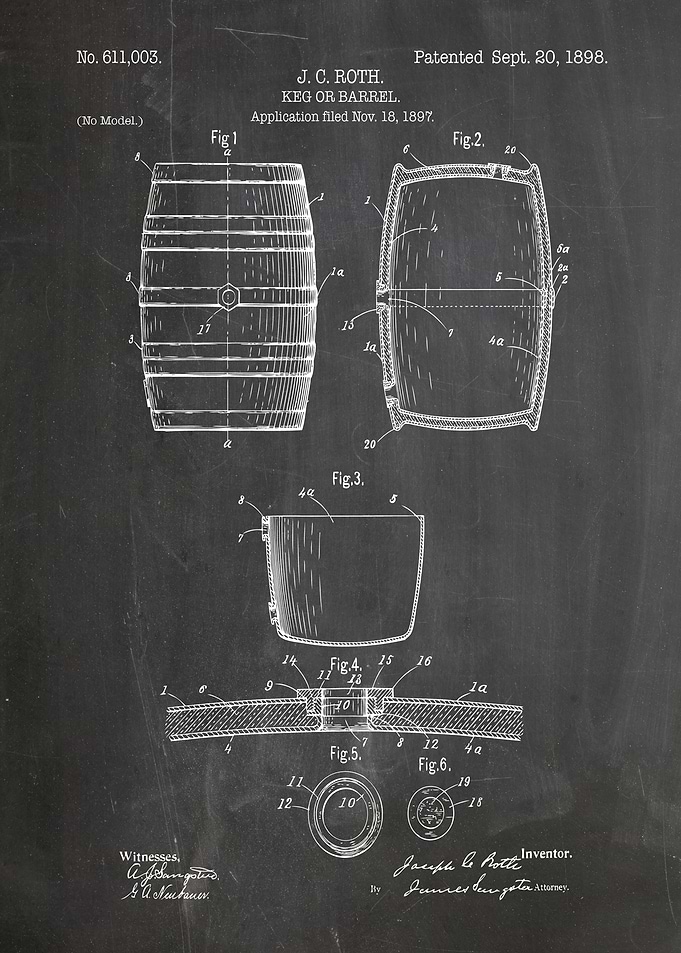 No. 611,003.
Patented Sept. 20, 1898.
J. C. ROTH.
KEG OR BARREL.
(No Model.)
Application filed Nov. 18, 1897.
Fig 1
Fig.2.
8
a
6
20
1
1
4
5a
3
1a
5
2a
2
17
13
7
3
1a
4a
a
20
Fig.3.
8
4a
5
7
Fig.4.
14
11
13
15
16
9
1
6
10
1a
4
7
8
12
4a
Fig.5.
Fig.6.
11
12
10
19
18
Witnesses,
Inventor.
Joseph C. Roth
G. A. Neubauer.
By James Sangster Attorney.